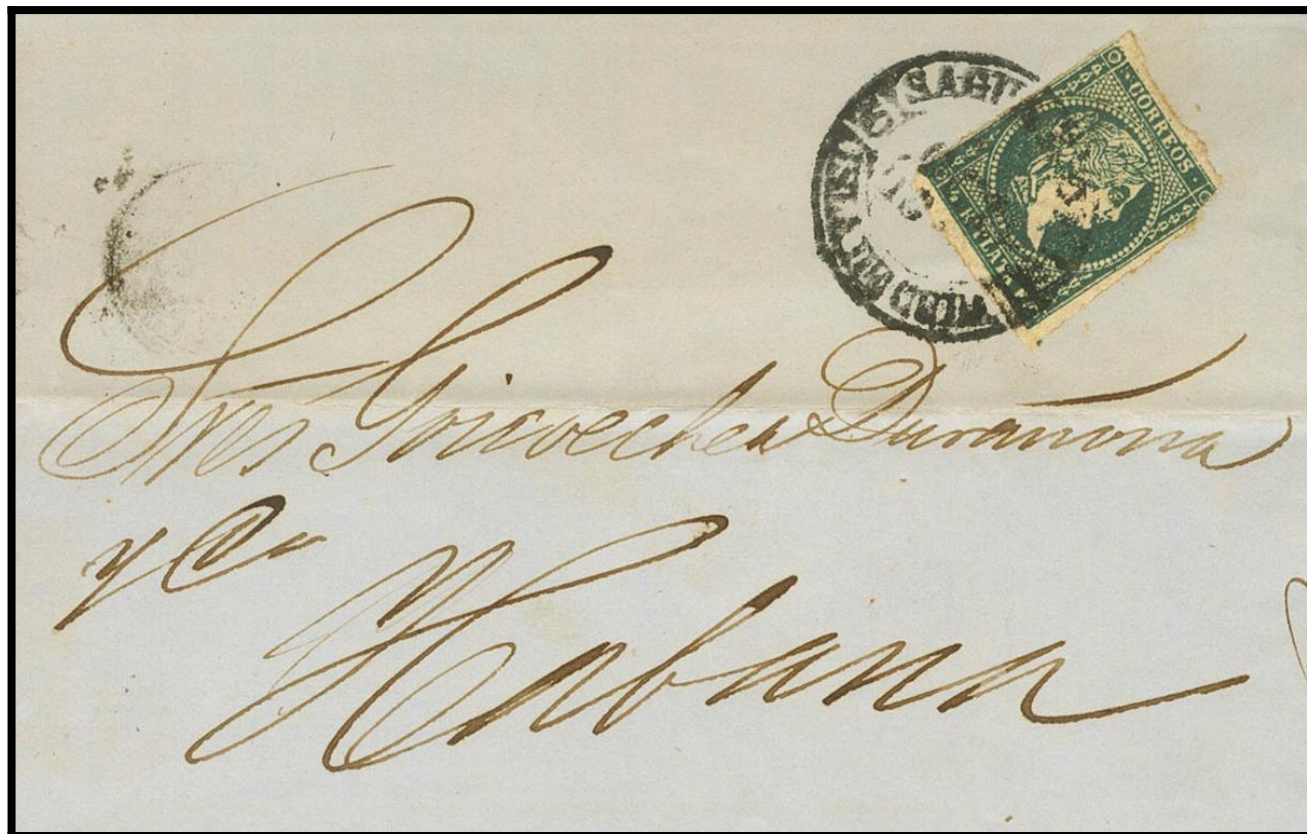 CORREOS
PLATA F.
Sres Goicoechea Durañona
y Ca
Habana